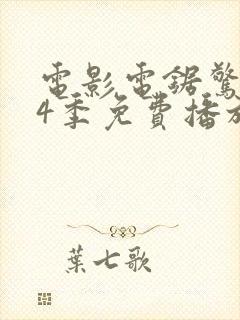 電影電鋸驚
4季免費播放
葉七歌